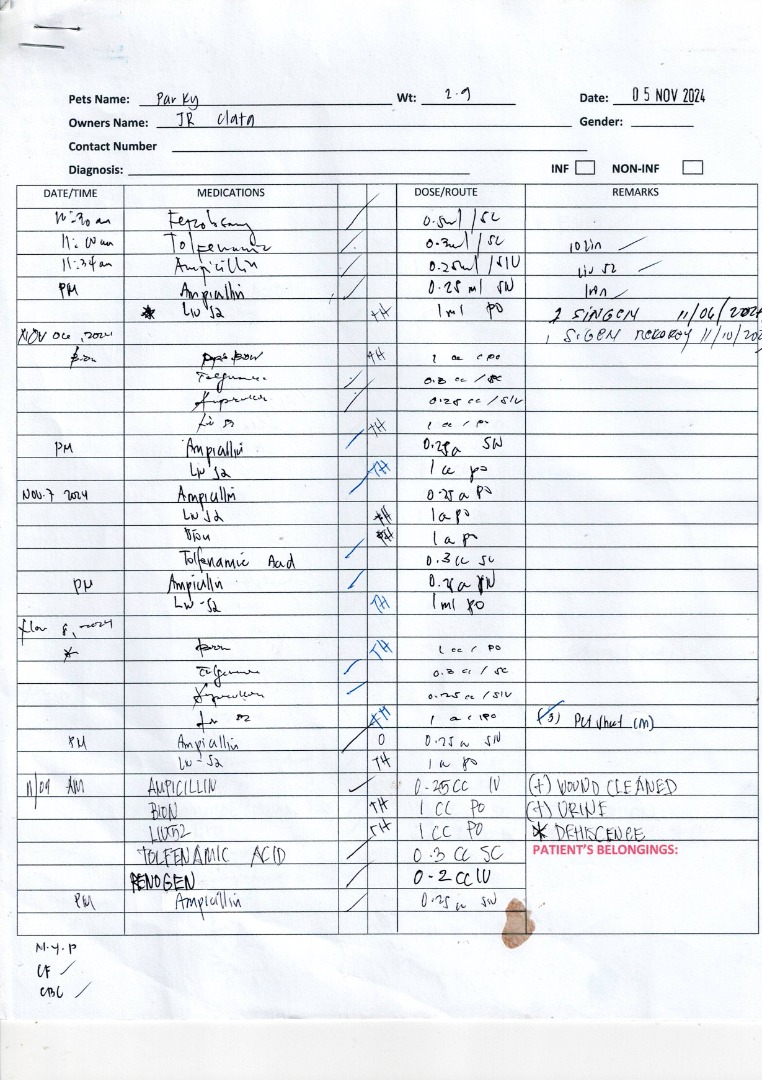 Pets Name: Parky Wt: 2.9 Date: 05 NOV 2024
Owners Name: JR Clata Gender:
Contact Number
Diagnosis: INF NON-INF
DATE/TIME MEDICATIONS DOSE/ROUTE REMARKS
11:20 am 0.5ml / SC
11:00 am Tolfenamic 0.3ml / SC
11:34 am Ampicillin 0.25ml / SIV Liv 52
PM Ampicillin 0.25 ml SIV
* Liv 52 TH 1ml PO 1 SINGEN 11/06/2024
NOV 06, 2024 1 SIGEN 11/10/202
Bion TH 1 cc PO
0.3 cc / SC
0.25 cc / SIV
Liv 52 TH 1 cc / PO
PM Ampicillin 0.25cc SIV
Liv 52 TH 1 cc PO
NOV. 7 2024 Ampicillin 0.25 cc PO
Liv 52 TH 1 cc PO
Bion TH 1 cc PO
Tolfenamic Acid 0.3 cc SC
PM Ampicillin 0.25 cc
Liv-52 TH 1ml PO
Nov 8, 2024
* Bion TH 1 cc / PO
0.3 cc / SC
0.25 cc / SIV
Liv 52 TH 1 cc PO (M)
PM Ampicillin 0 0.25 cc SIV
Liv-52 TH 1 cc PO
11/09 AM AMPICILLIN 0.25CC IV (+) WOUND CLEANED
BION TH 1 CC PO (+) URINE
LIV52 TH 1 CC PO * DEHISCENCE
TOLFENAMIC ACID 0.3 CC SC PATIENT'S BELONGINGS:
RENOGEN 0.2 CC IV
PM Ampicillin 0.25 cc SIV
N.Y.P
CF /
CBC /